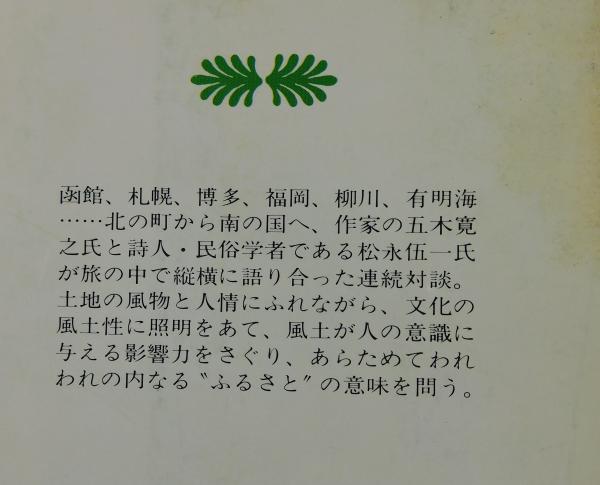 函館、札幌、博多、福岡、柳川、有明海
……北の町から南の国へ、作家の五木寛
之氏と詩人・民俗学者である松永伍一氏
が旅の中で縦横に語り合った連続対談。
土地の風物と人情にふれながら、文化の
風土性に照明をあて、風土が人の意識に
与える影響力をさぐり、あらためてわれ
われの内なる〝ふるさと〟の意味を問う。